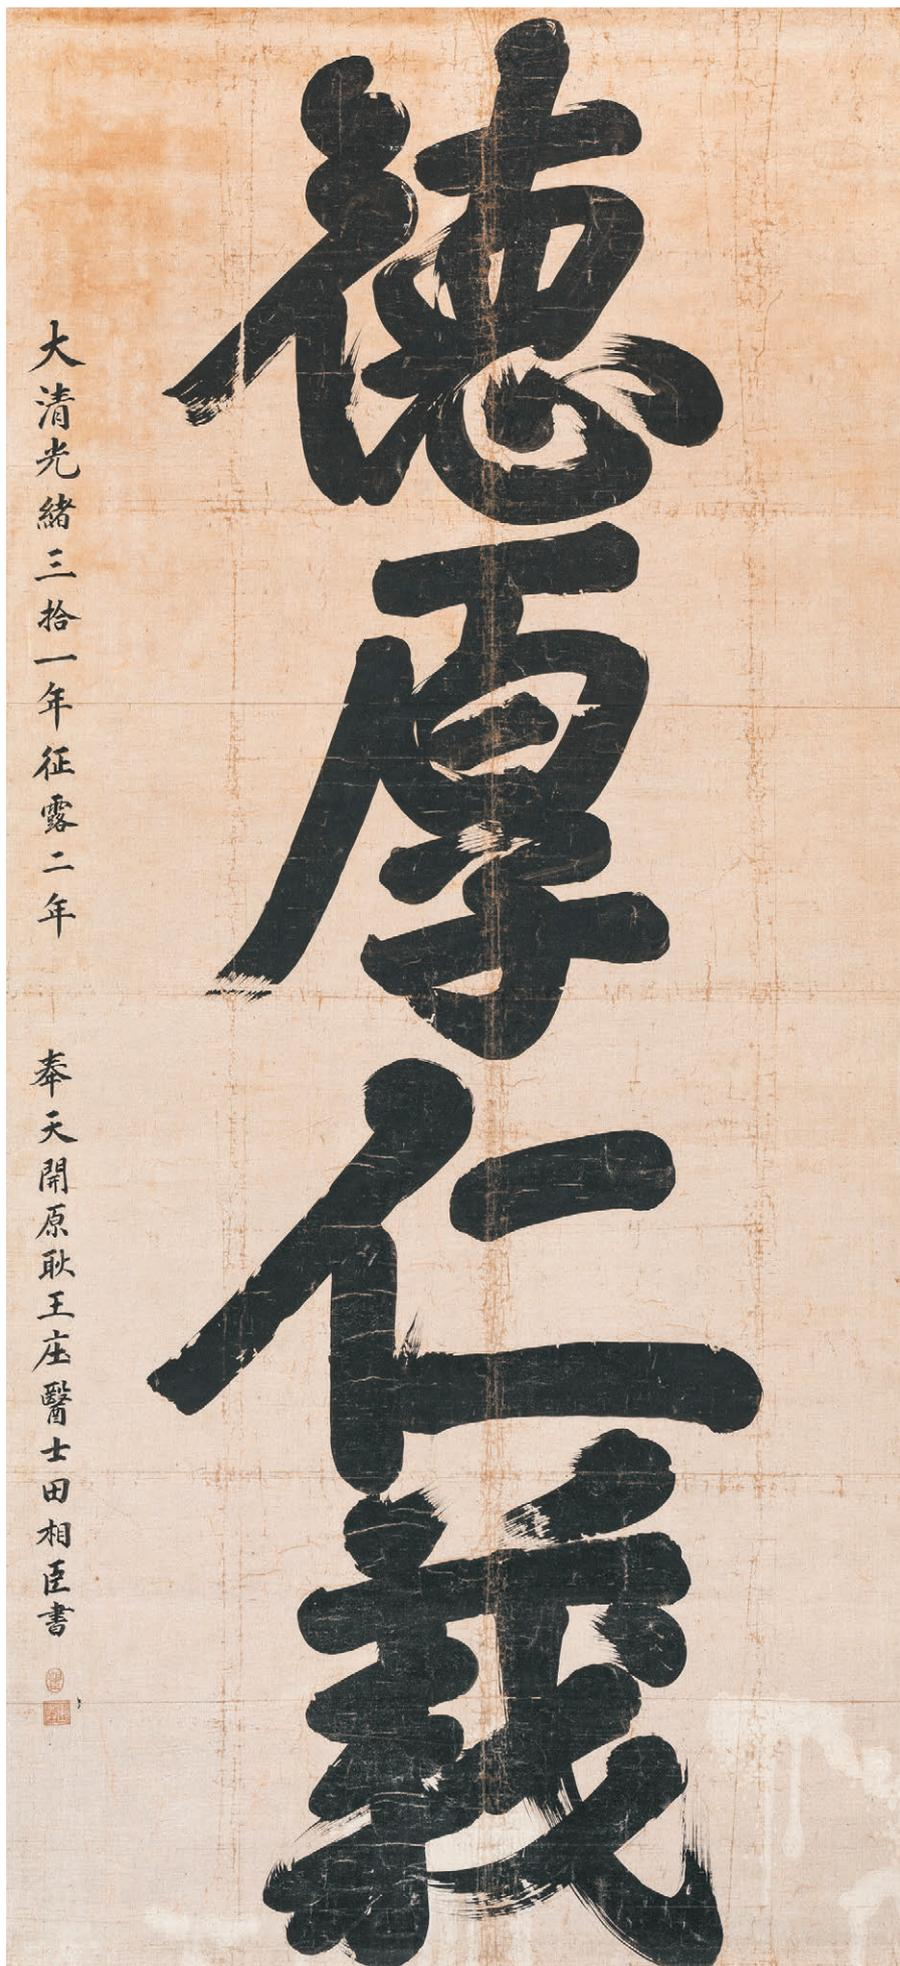 德厚仁義
大清光緒三拾一年征露二年　奉天開原耿王庄醫士田相臣書